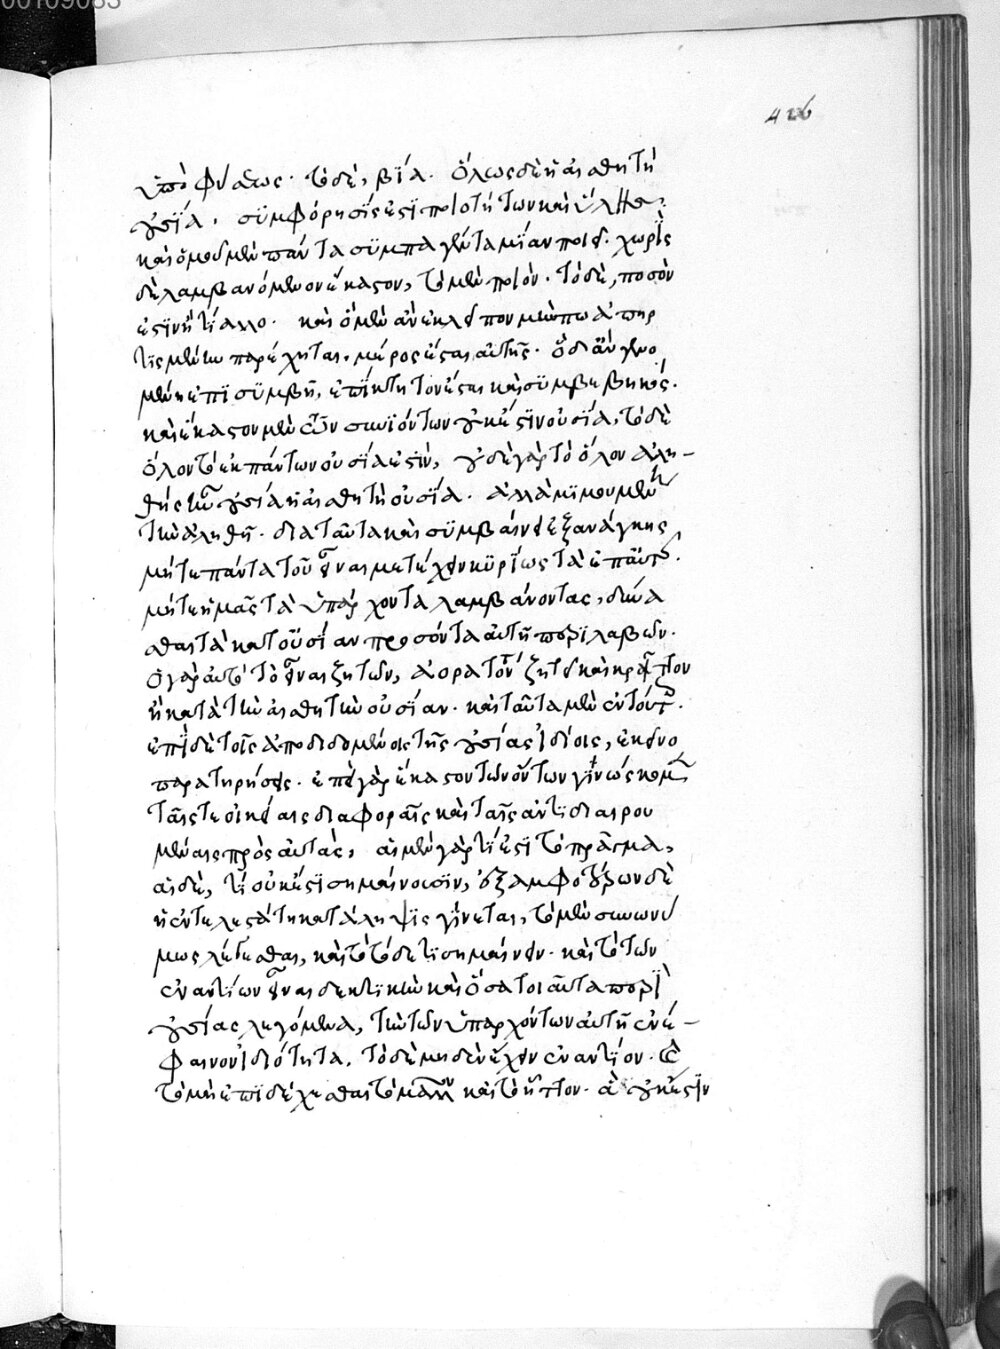 00109083
426
ὑπὸ φύσεως· τὸ δὲ, βία. ὅλως δὲ ἡ αἰσθητὴ
οὐσία, συμφόρησίς ἐστι ποιοτήτων καὶ ὕλης.
καὶ ὁμοῦ μὲν πάντα συμπαγέντα μίαν ποιεῖ. χωρὶς
δὲ λαμβανόμενον ἕκαστον, τὸ μὲν ποιὸν. τὸ δὲ, ποσὸν
ἐστὶν ἤ τι ἄλλο. καὶ ὃ μὲν ἂν ἐκλεῖπον μήπω ἅπερ
τις μὲν παρέχηται, μέρος ἔσται αὐτῆς. ὃ δ' ἂν γενο
μένη ἐπισυμβῇ, ἐπίκτητον ἔσται καὶ συμβεβηκός.
καὶ ἕκαστον μὲν ὧν συνιόντων οὐκ ἔστιν οὐσία, τὸ δὲ
ὅλον τὸ ἐκ πάντων οὐσία ἐστίν, οὐδὲ γὰρ τὸ ὅλον ἀλη-
θής τις οὐσία ἡ αἰσθητὴ οὐσία. ἀλλὰ μιμουμένη
τὴν ἀληθῆ. διὰ ταῦτα καὶ συμβαίνει ἐξ ἀνάγκης
μήτε πάντα τοῦ εἶναι μετέχειν κυρίως τὰ ἐπ' αὐτῆς.
μήτε ἡμᾶς τὰ ὑπάρχοντα λαμβάνοντας, δύνα
σθαι τὰ κατ' οὐσίαν προσόντα αὐτῇ περιλαβεῖν.
ὁ γὰρ αὐτὸ τὸ εἶναι ζητῶν, ἀόρατόν τι ζητεῖ καὶ κρεῖττον
ἢ κατὰ τὴν αἰσθητὴν οὐσίαν. καὶ ταῦτα μὲν ἐν τούτοις.
ἐπὶ δὲ τοῖς ἀποδιδομένοις τῆς οὐσίας ἰδίοις, ἐκεῖνο
παρατηρήσεις. ἐπεὶ γὰρ ἕκαστον τῶν ὄντων γινώσκομεν
ταῖς τε οἰκείαις διαφοραῖς καὶ ταῖς ἀντιδιαιρου
μέναις πρὸς αὐτάς, αἱ μὲν γὰρ τί ἐστι τὸ πρᾶγμα,
αἱ δὲ, τί οὐκ ἔστι σημαίνουσιν, ἐξ ἀμφοτέρων δὲ
ἡ ἐντελεστάτη κατάληψις γίνεται, τὸ μὲν συνωνύ
μως λέγεσθαι, καὶ τὸ τόδε τι σημαίνειν. καὶ τὸ τῶν
ἐναντίων εἶναι δεκτικὴν καὶ ὅσα τοιαῦτα περὶ
οὐσίας λεγόμενα, τὴν τῶν ὑπαρχόντων αὐτῇ ἐνέ-
φαινον ἰδιότητα. τὸ δὲ μηδὲν ἔχειν ἐναντίον. καὶ
τὸ μὴ ἐπιδέχεσθαι τὸ μᾶλλον καὶ τὸ ἧττον. ἃ οὐκ ἔστιν